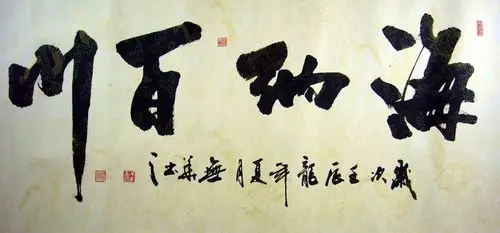 海纳百川
歲次壬辰龍年夏月無